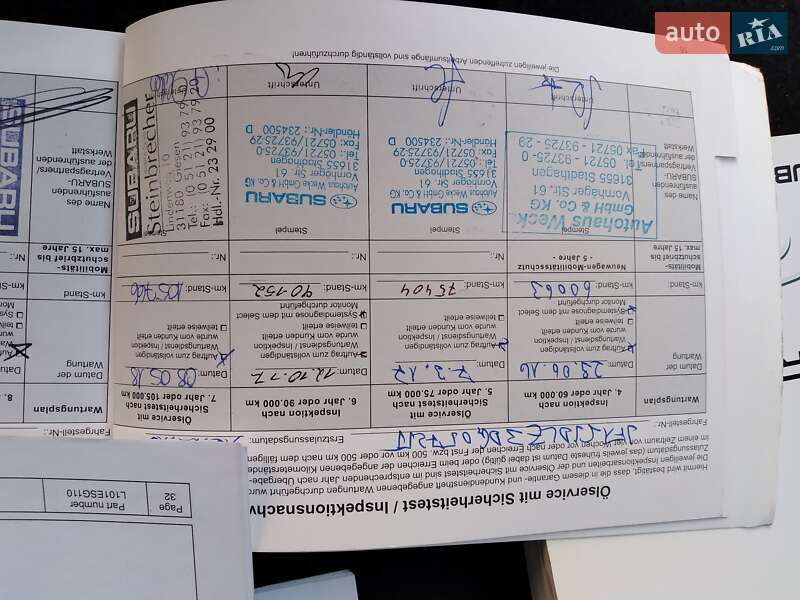 auto RIA.com
Ölservice mit Sicherheitstest / Inspektionsnachw
Hiermit wird bestätigt, dass die in diesem Garantie- und Kundendienstheft angegebenen Wartungen durchgeführt wur
Die jeweiligen Inspektionsarbeiten und der Ölservice mit Sicherheitstest sind im entsprechenden Jahr nach Übergabe-
Zulassungsdatum (das jeweils früheste Datum ist dabei gültig) oder beim Erreichen der angegebenen Kilometerstände
im Zeitraum von vier Wochen vor oder nach Erreichen der Frist bzw. 500 km vor oder 500 km nach dem fälligen
Fahrgestell-Nr.:
Erstzulassungsdatum:
Wartungsplan
4. Jahr oder 60.000 km
Inspektion nach
5. Jahr oder 75.000 km
Ölservice mit Sicherheitstest nach
6. Jahr oder 90.000 km
Inspektion nach
7. Jahr oder 105.000 km
Ölservice mit Sicherheitstest nach
Wartungsplan
8.
Datum der Wartung
Datum: 29.06.16
Auftrag zum vollständigen Wartungsdienst / Inspektion
wurde vom Kunden erteilt
teilweise erteilt
Systemdiagnose mit dem Select Monitor durchgeführt
Datum: 7.3.17
Auftrag zum vollständigen Wartungsdienst / Inspektion
wurde vom Kunden erteilt
teilweise erteilt
Systemdiagnose mit dem Select Monitor durchgeführt
Datum: 12.10.17
Auftrag zum vollständigen Wartungsdienst / Inspektion
wurde vom Kunden erteilt
teilweise erteilt
Systemdiagnose mit dem Select Monitor durchgeführt
Datum: 08.05.18
Auftrag zum vollständigen Wartungsdienst / Inspektion
wurde vom Kunden erteilt
teilweise erteilt
Systemdiagnose mit dem Select Monitor durchgeführt
Datum der Wartung
km-Stand
km-Stand: 60063
km-Stand: 75404
km-Stand: 90.152
km-Stand: 105766
km-Stand
Mobilitäts-
schutzbrief bis
max. 15 Jahre
Neuwagen-Mobilitätsschutz
- 5 Jahre -
Nr.:
Nr.:
Nr.:
Mobilitäts-
schutzbrief bis
max. 15 Jahre
Name des
ausführenden
SUBARU-
Vertragspartners/
der ausführenden
Werkstatt
Stempel
Autohaus Weck
GmbH & Co. KG
Vornhäger Str. 61
31655 Stadthagen
Tel. 05721 - 93725 - 0
Fax 05721 - 93725 - 29
Stempel
SUBARU
Autohaus Wecke GmbH & Co. KG
Vornhäger Str. 61
31655 Stadthagen
Tel.: 05721/93725-0
Fax: 05721/93725-29
Händler-Nr.: 234500 D
Stempel
SUBARU
Autohaus Wecke GmbH & Co. KG
Vornhäger Str. 61
31655 Stadthagen
Tel.: 05721/93725-0
Fax: 05721/93725-29
Händler-Nr.: 234500 D
SUBARU
Steinbrecher
31180 Giesen
Tel.: (0 51 21) 93 79 0
Fax: (0 51 21) 93 79 20
Hdl.-Nr. 23 29 00
Name des
ausführenden
SUBARU-
Vertragspartners/
der ausführenden
Werkstatt
SUBARU
Unterschrift
Unterschrift
Unterschrift
Die jeweiligen zutreffenden Arbeitsumfänge sind vollständig durchzuführen!
16
Page
32
Part number
L101ESG110